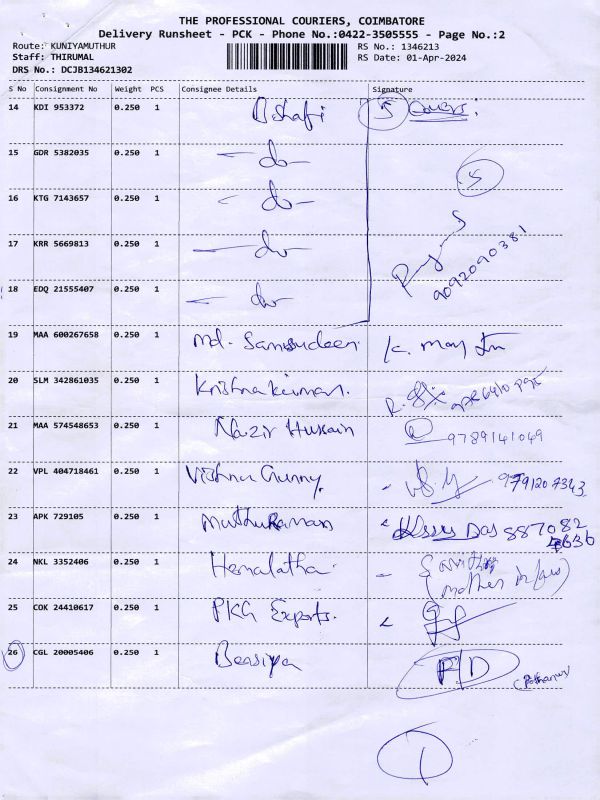 THE PROFESSIONAL COURIERS, COIMBATORE
Delivery Runsheet - PCK - Phone No.:0422-3505555 - Page No.:2
Route: KUNIYAMUTHUR RS No.: 1346213
Staff: THIRUMAL RS Date: 01-Apr-2024
DRS No.: DCJB134621302
S No Consignment No Weight PCS Consignee Details Signature
14 KDI 953372 0.250 1 5 Covers
15 GDR 5382035 0.250 1 do 5
16 KTG 7143657 0.250 1 do
17 KRR 5669813 0.250 1 do 9092090381
18 EDQ 21555407 0.250 1 do
19 MAA 600267658 0.250 1 Md. Samsudeen K.
20 SLM 342861035 0.250 1 Krishnakumar. R.
21 MAA 574548653 0.250 1 Nazir Hussain 9789141049
22 VPL 404718461 0.250 1 Vishnu 9791207343
23 APK 729105 0.250 1 Muthuraman Das 887082
4636
24 NKL 3352406 0.250 1 Hemalatha
(mother in law)
25 COK 24410617 0.250 1 PKG Exports.
26 CGL 20005406 0.250 1 Beasiya P/D
1